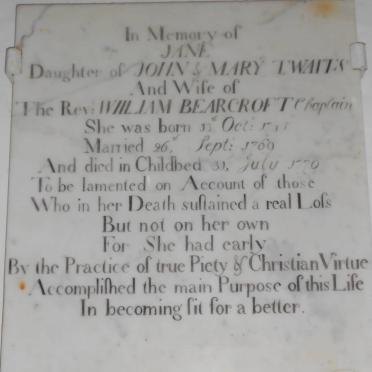 In Memory of
JANE
Daughter of JOHN & MARY TWAITS
And Wife of
The Rev: WILLIAM BEARCROFT Chaplain
She was born Oct:
Married 26 Sept: 1769
And died in Childbed 31, July 1770
To be lamented on Account of those
Who in her Death ſuſtained a real Loſs
But not on her own
For She had early
By the Practice of true Piety & Chriſtian Virtue
Accompliſhed the main Purpose of this Life
In becoming fit for a better.